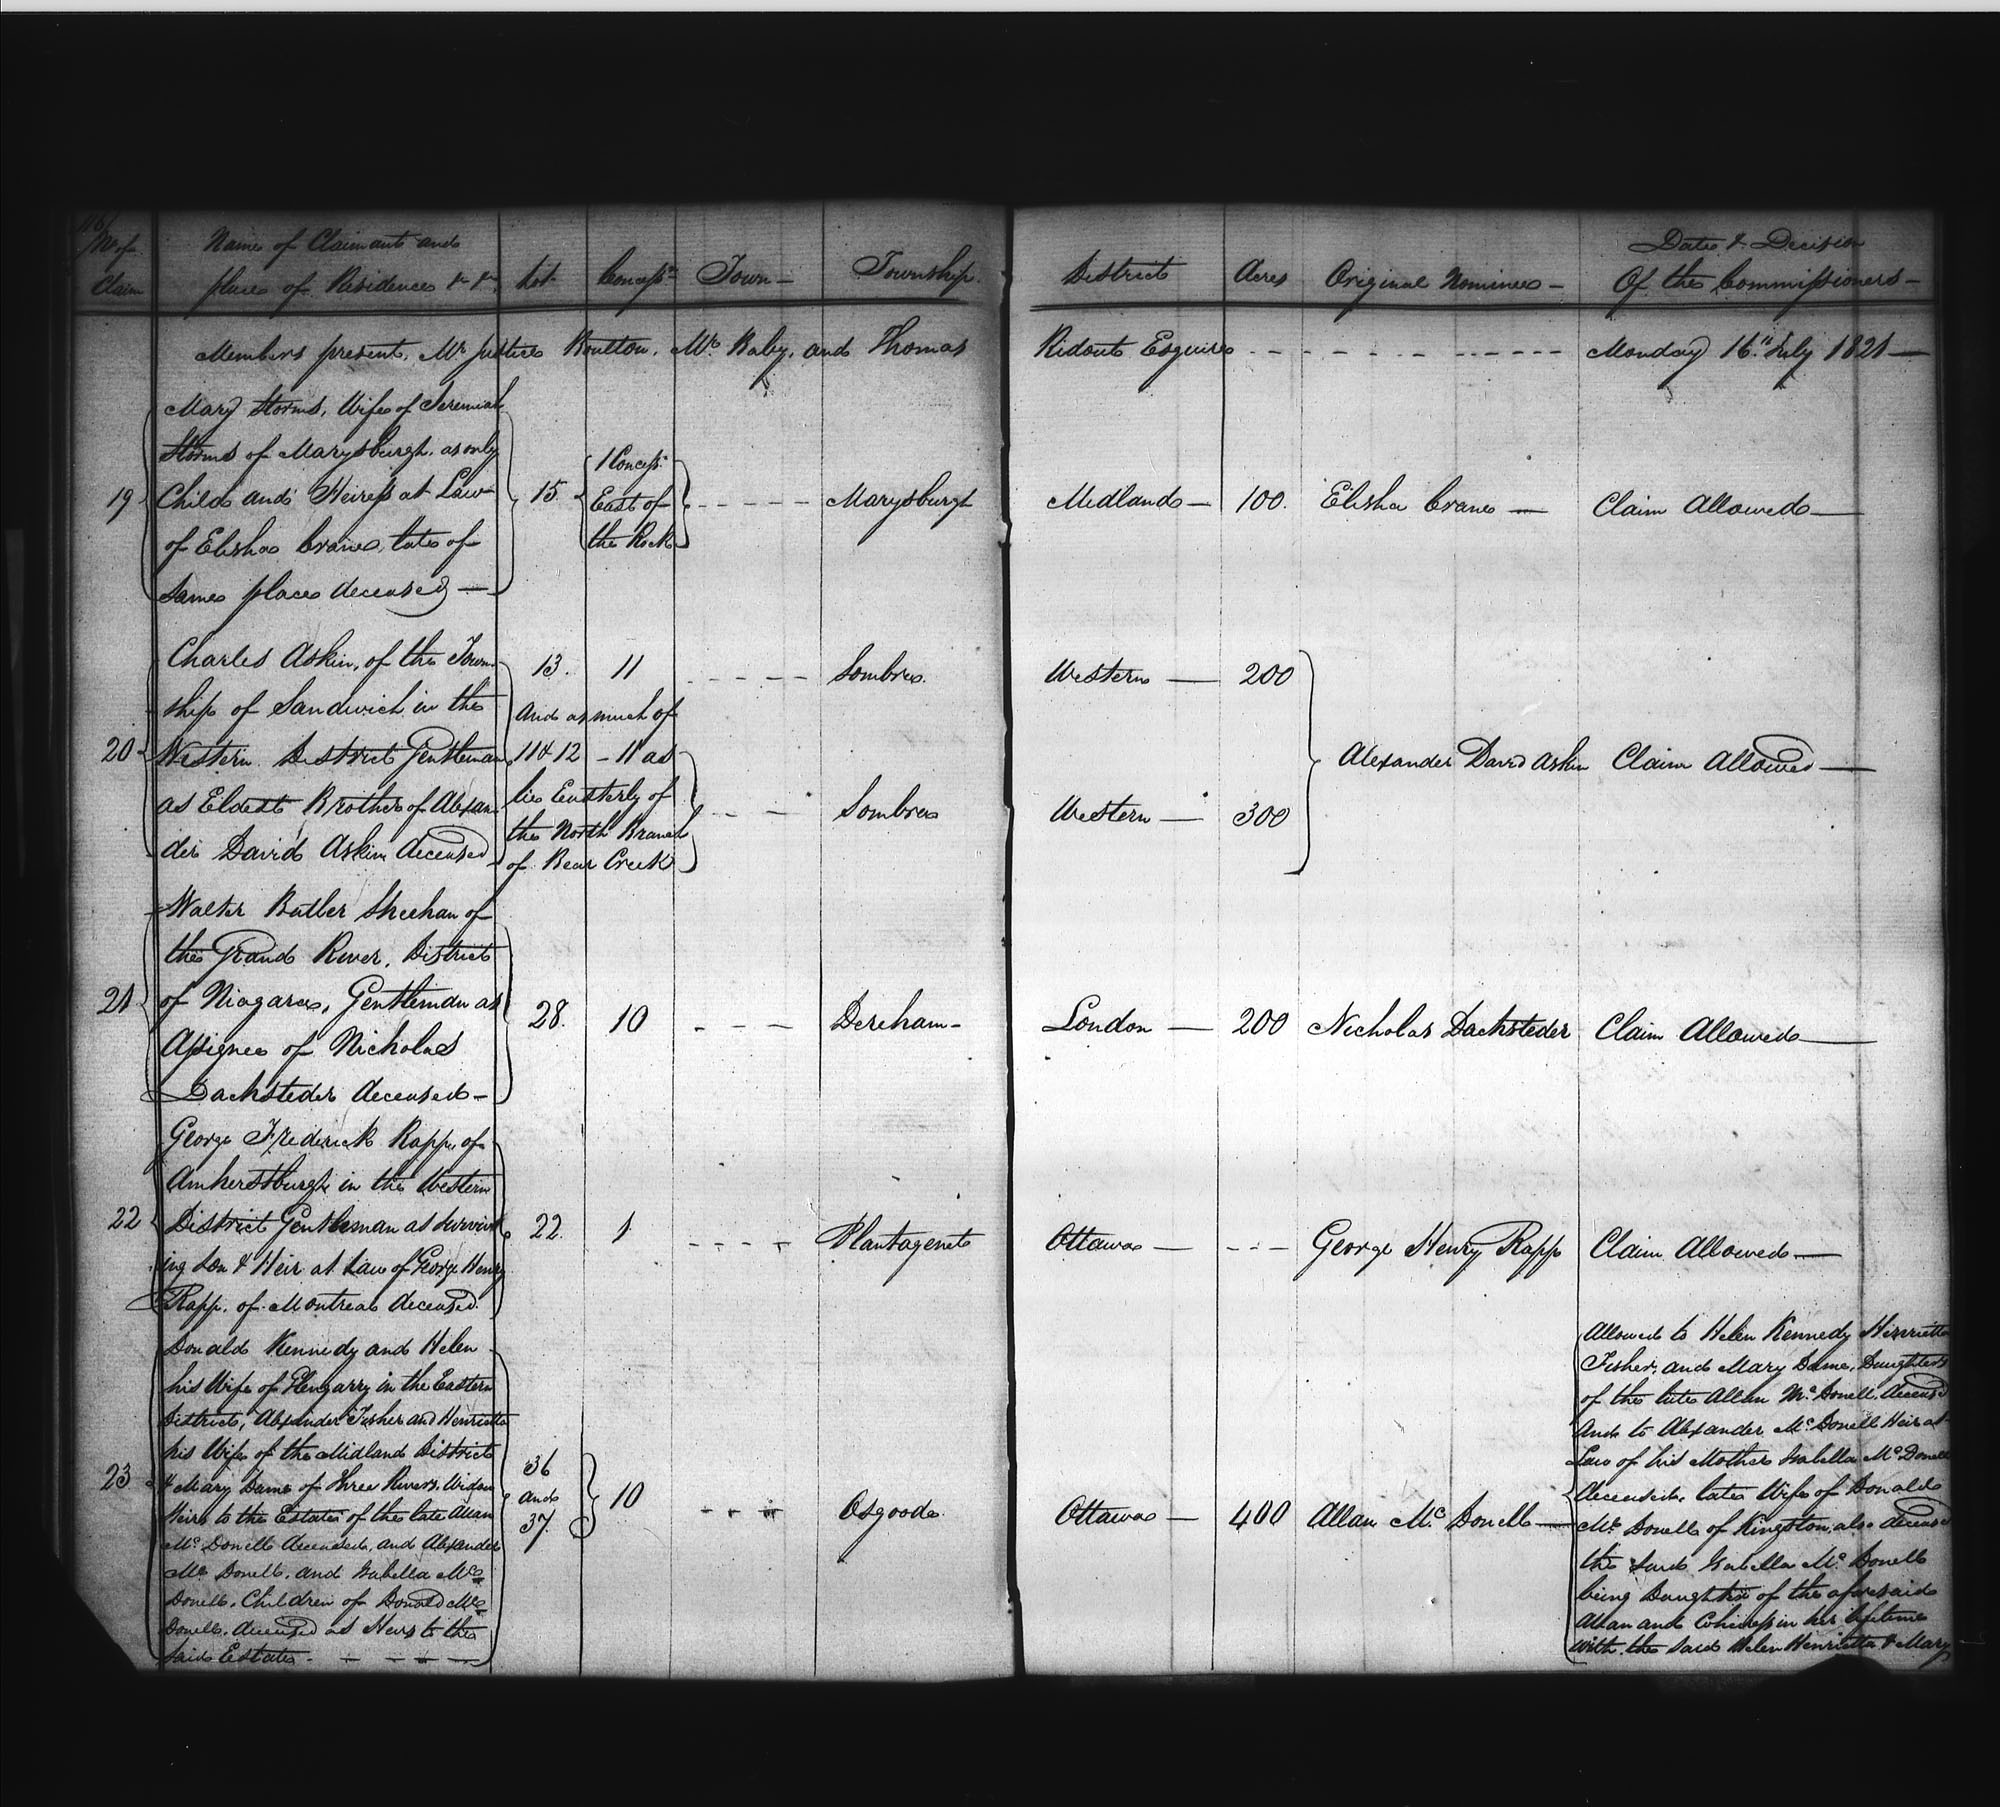 116
No of Claim
Names of Claimants and places of Residences &c &c
Lot
Concess.n
Town
Township
District
Acres
Original Nominee
Date & Decision Of the Commissioners
Members present, Mr Justice Boulton, Mr Baby, and Thomas Ridout Esquires - - - Monday 16th July 1821
19
Mary Storms, Wife of Jeremiah
Storms of Marysburgh, as only
Child and Heiress at Law
of Elisha Crane, late of
Same place deceased
15.
1 Concess.
East of
the Rock
Marysburgh
Midland
100.
Elisha Crane
Claim Allowed
20
Charles Askin, of the Town
ship of Sandwich in the
Western District Gentleman
as Eldest Brother of Alexan
der David Askin deceased
13. 11
and as much of
11 & 12 - 11 as
lies Easterly of
the North Branch
of Bear Creek
Sombra
Sombra
Western
Western
200
300
Alexander David Askin
Claim Allowed
21
Walter Butler Sheehan of
the Grand River, District
of Niagara, Gentleman as
Assignee of Nicholas
Dachsteder deceased
28. 10
Dereham
London
200
Nicholas Dachsteder
Claim Allowed
22
George Frederick Rapp, of
Amherstburgh in the Western
District Gentleman as Surviv
ing Son & Heir at Law of George Henry
Rapp, of Montreal deceased.
22. 1
Plantagenet
Ottawa
George Henry Rapp
Claim Allowed
23
Donald Kennedy and Helen
his Wife of Glengarry in the Eastern
District, Alexander Fisher and Henrietta
his Wife of the Midland District
& Mary Dame of Three Rivers, Widow
Heirs to the Estate of the late Allan
Mc Donell deceased, and Alexander
Mc Donell, and Isabella Mc
Donell, Children of Donald Mc
Donell, deceased as Heirs to the
said Estate
36
and
37.
10
Osgoode
Ottawa
400
Allan Mc Donell
Allowed to Helen Kennedy Henrietta
Fisher, and Mary Dame, Daughters
of the late Allan Mc Donell, deceased
And to Alexander Mc Donell Heir at
Law of his Mother Isabella Mc Donell
deceased, late Wife of Donald
Mc Donell of Kingston, also deceased
the said Isabella Mc Donell
being Daughter of the aforesaid
Allan and Coheiress in her lifetime
with the said Helen Henrietta & Mary